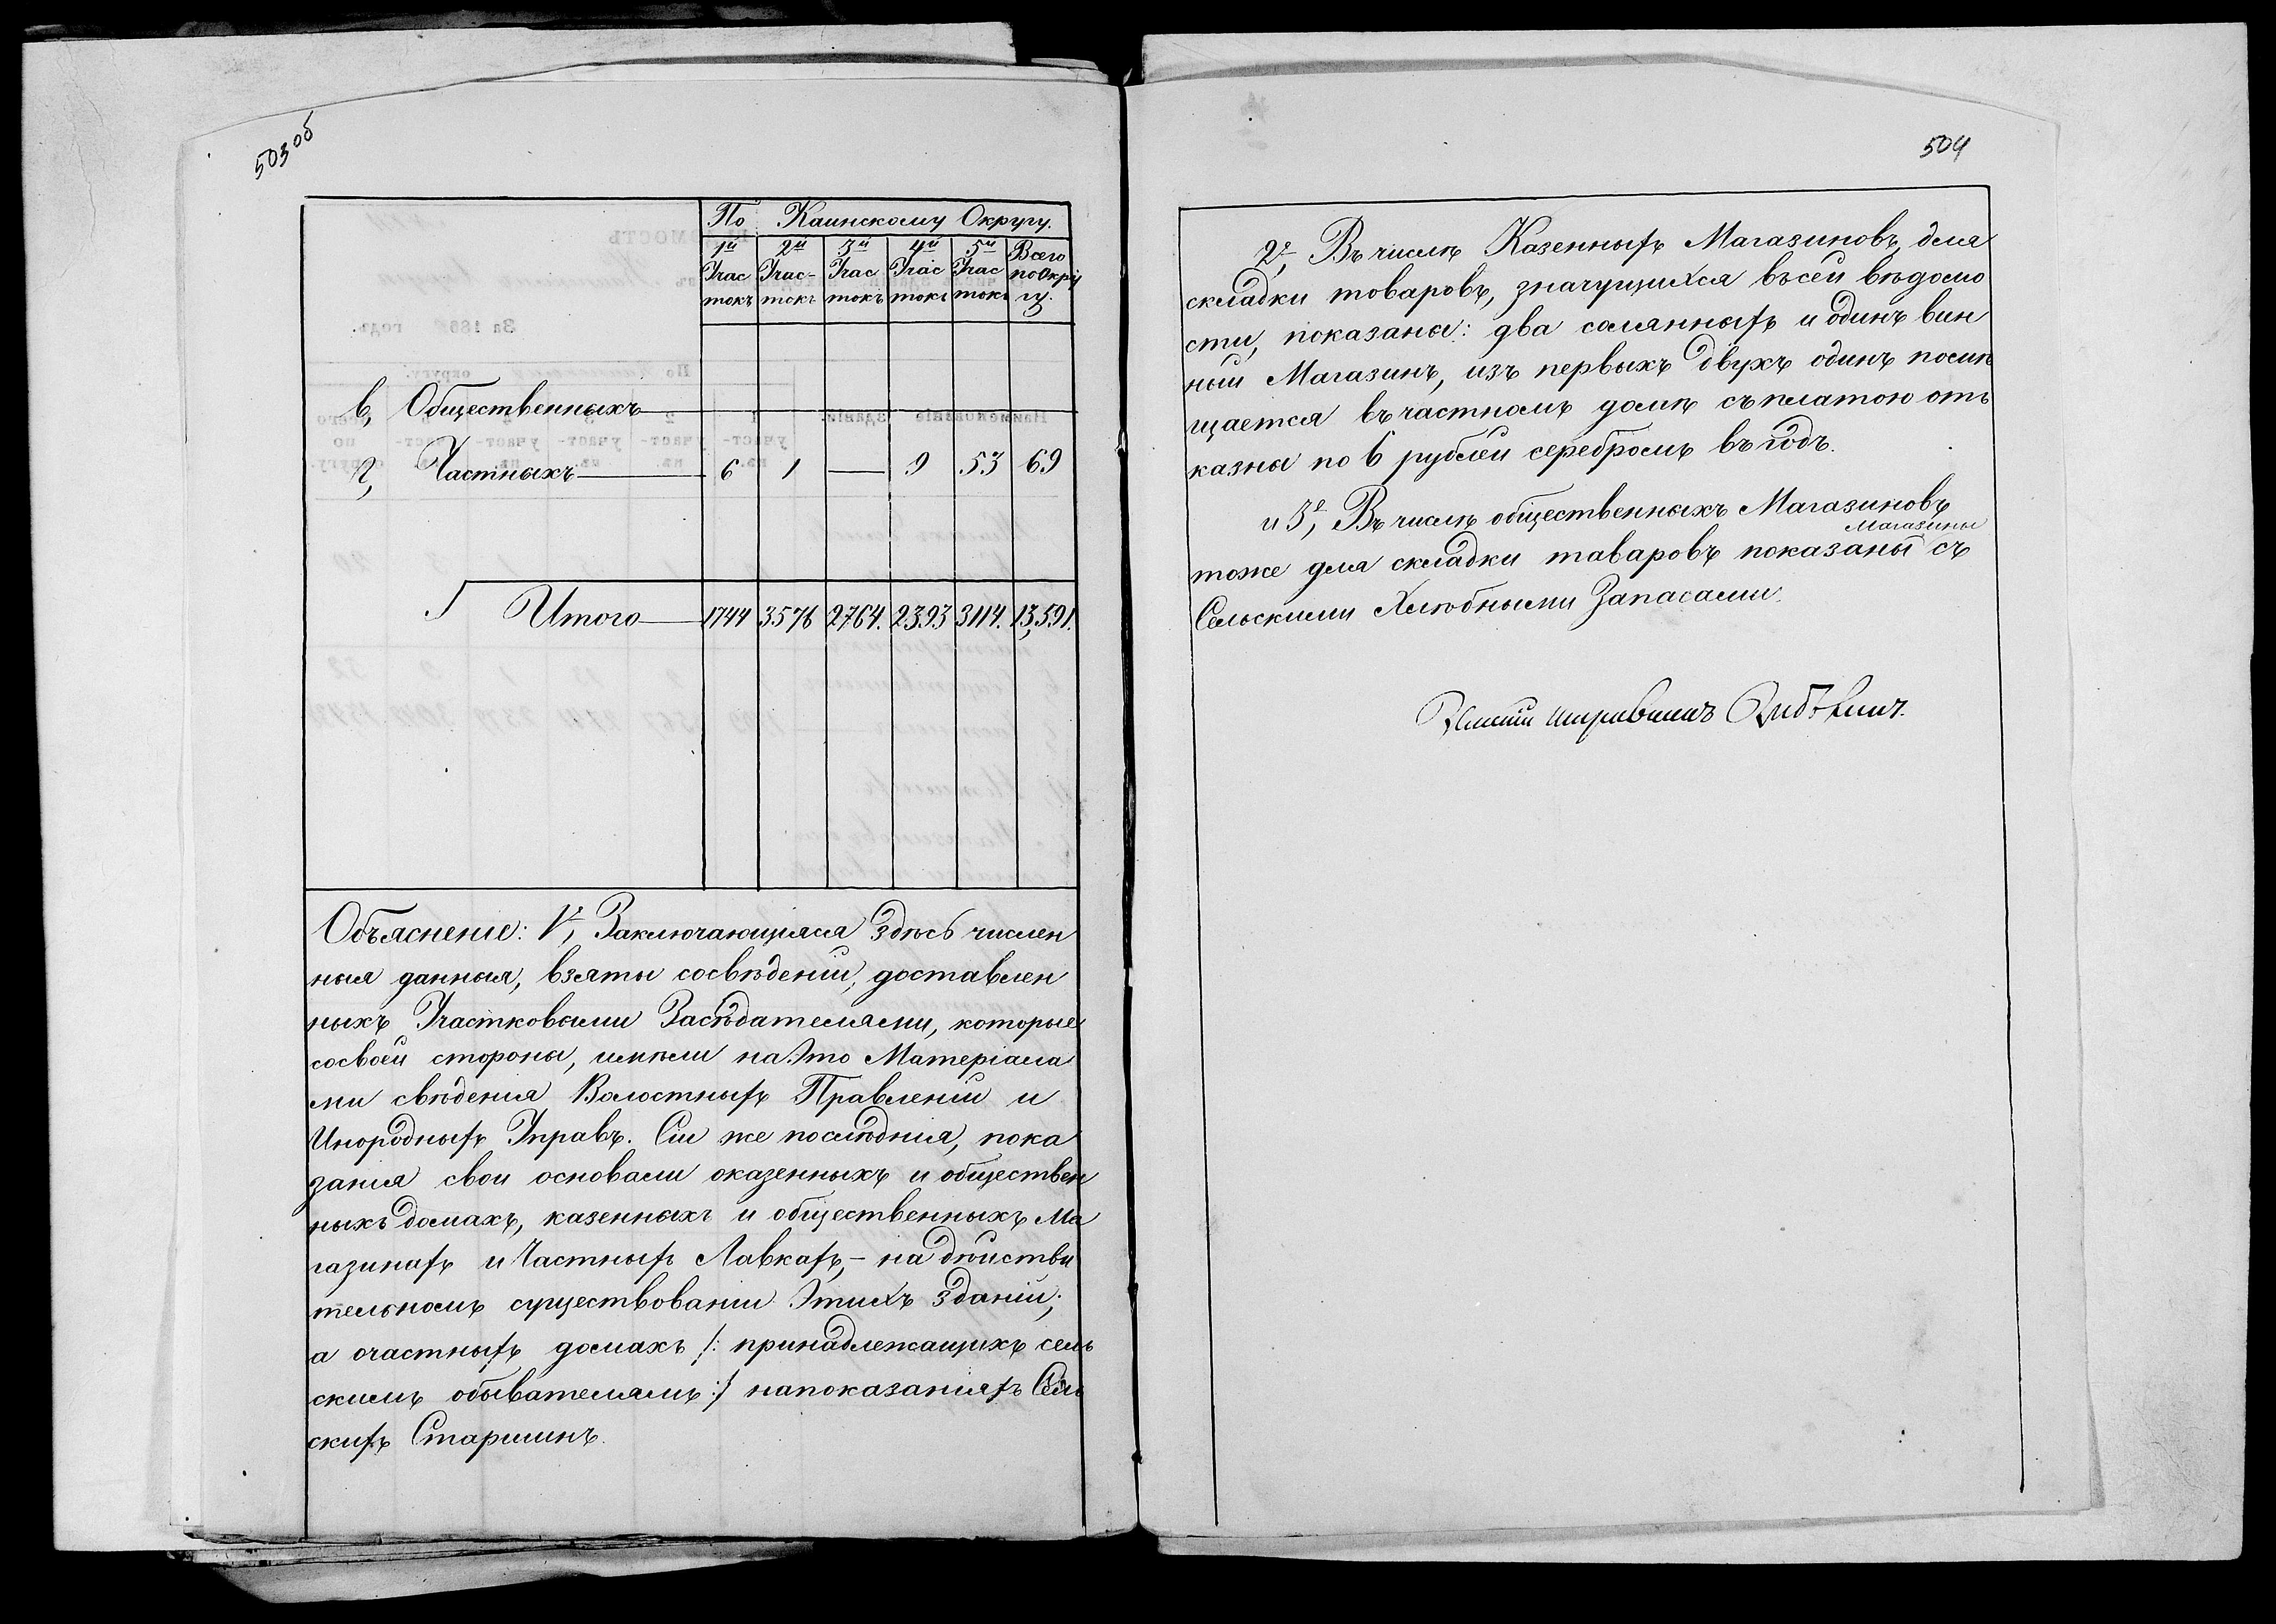 503об
По Каинскому Округу.
1й Учас токъ 2й Учас- токъ 3й Учас токъ 4й Учас токъ 5й Учас токъ Всего по Окру гу.
в, Общественныхъ
г, Частныхъ 6 1 — 9 53 69
Итого 1744 3576 2764. 2393 3114. 13,591.
Объясненіе: 1е, Заключающіяся здѣсь числен
ныя данныя, взяты со свѣденій, доставлен
ныхъ Участковыми Засѣдателями, которые
со своей стороны, имѣли на это Матеріала
ми свѣденія Волостныхъ Правленій и
Инородныхъ Управъ. Сіи же послѣднія, пока
занія свои основали о казенныхъ и обществен
ныхъ домахъ, казенныхъ и общественныхъ Ма
газинахъ и Частныхъ Лавкахъ, – на дѣйстви
тельномъ существованіи этихъ зданій;
а о частныхъ домахъ /: принадлежащихъ сель
скимъ обывателямъ :/ на показаніяхъ Сель
скихъ Старшинъ.
504
2е, Въ числѣ Казенныхъ Магазиновъ, для
складки товаровъ, значущихся въ сей вѣдомо
сти, показаны: два соляныхъ и одинъ вин
ный Магазинъ, изъ первыхъ двухъ одинъ помѣ
щается въ частномъ домѣ съ платою отъ
казны по 6 рублей серебромъ въ годъ.
и 3е, Въ числѣ общественныхъ Магазиновъ
Магазины
тоже для складки таваровъ показаны съ
Сельскими Хлѣбными Запасами.